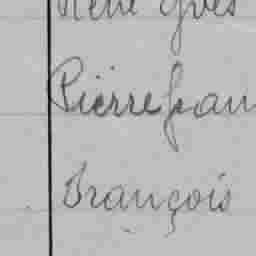 René Yves
Pierre Jean
François